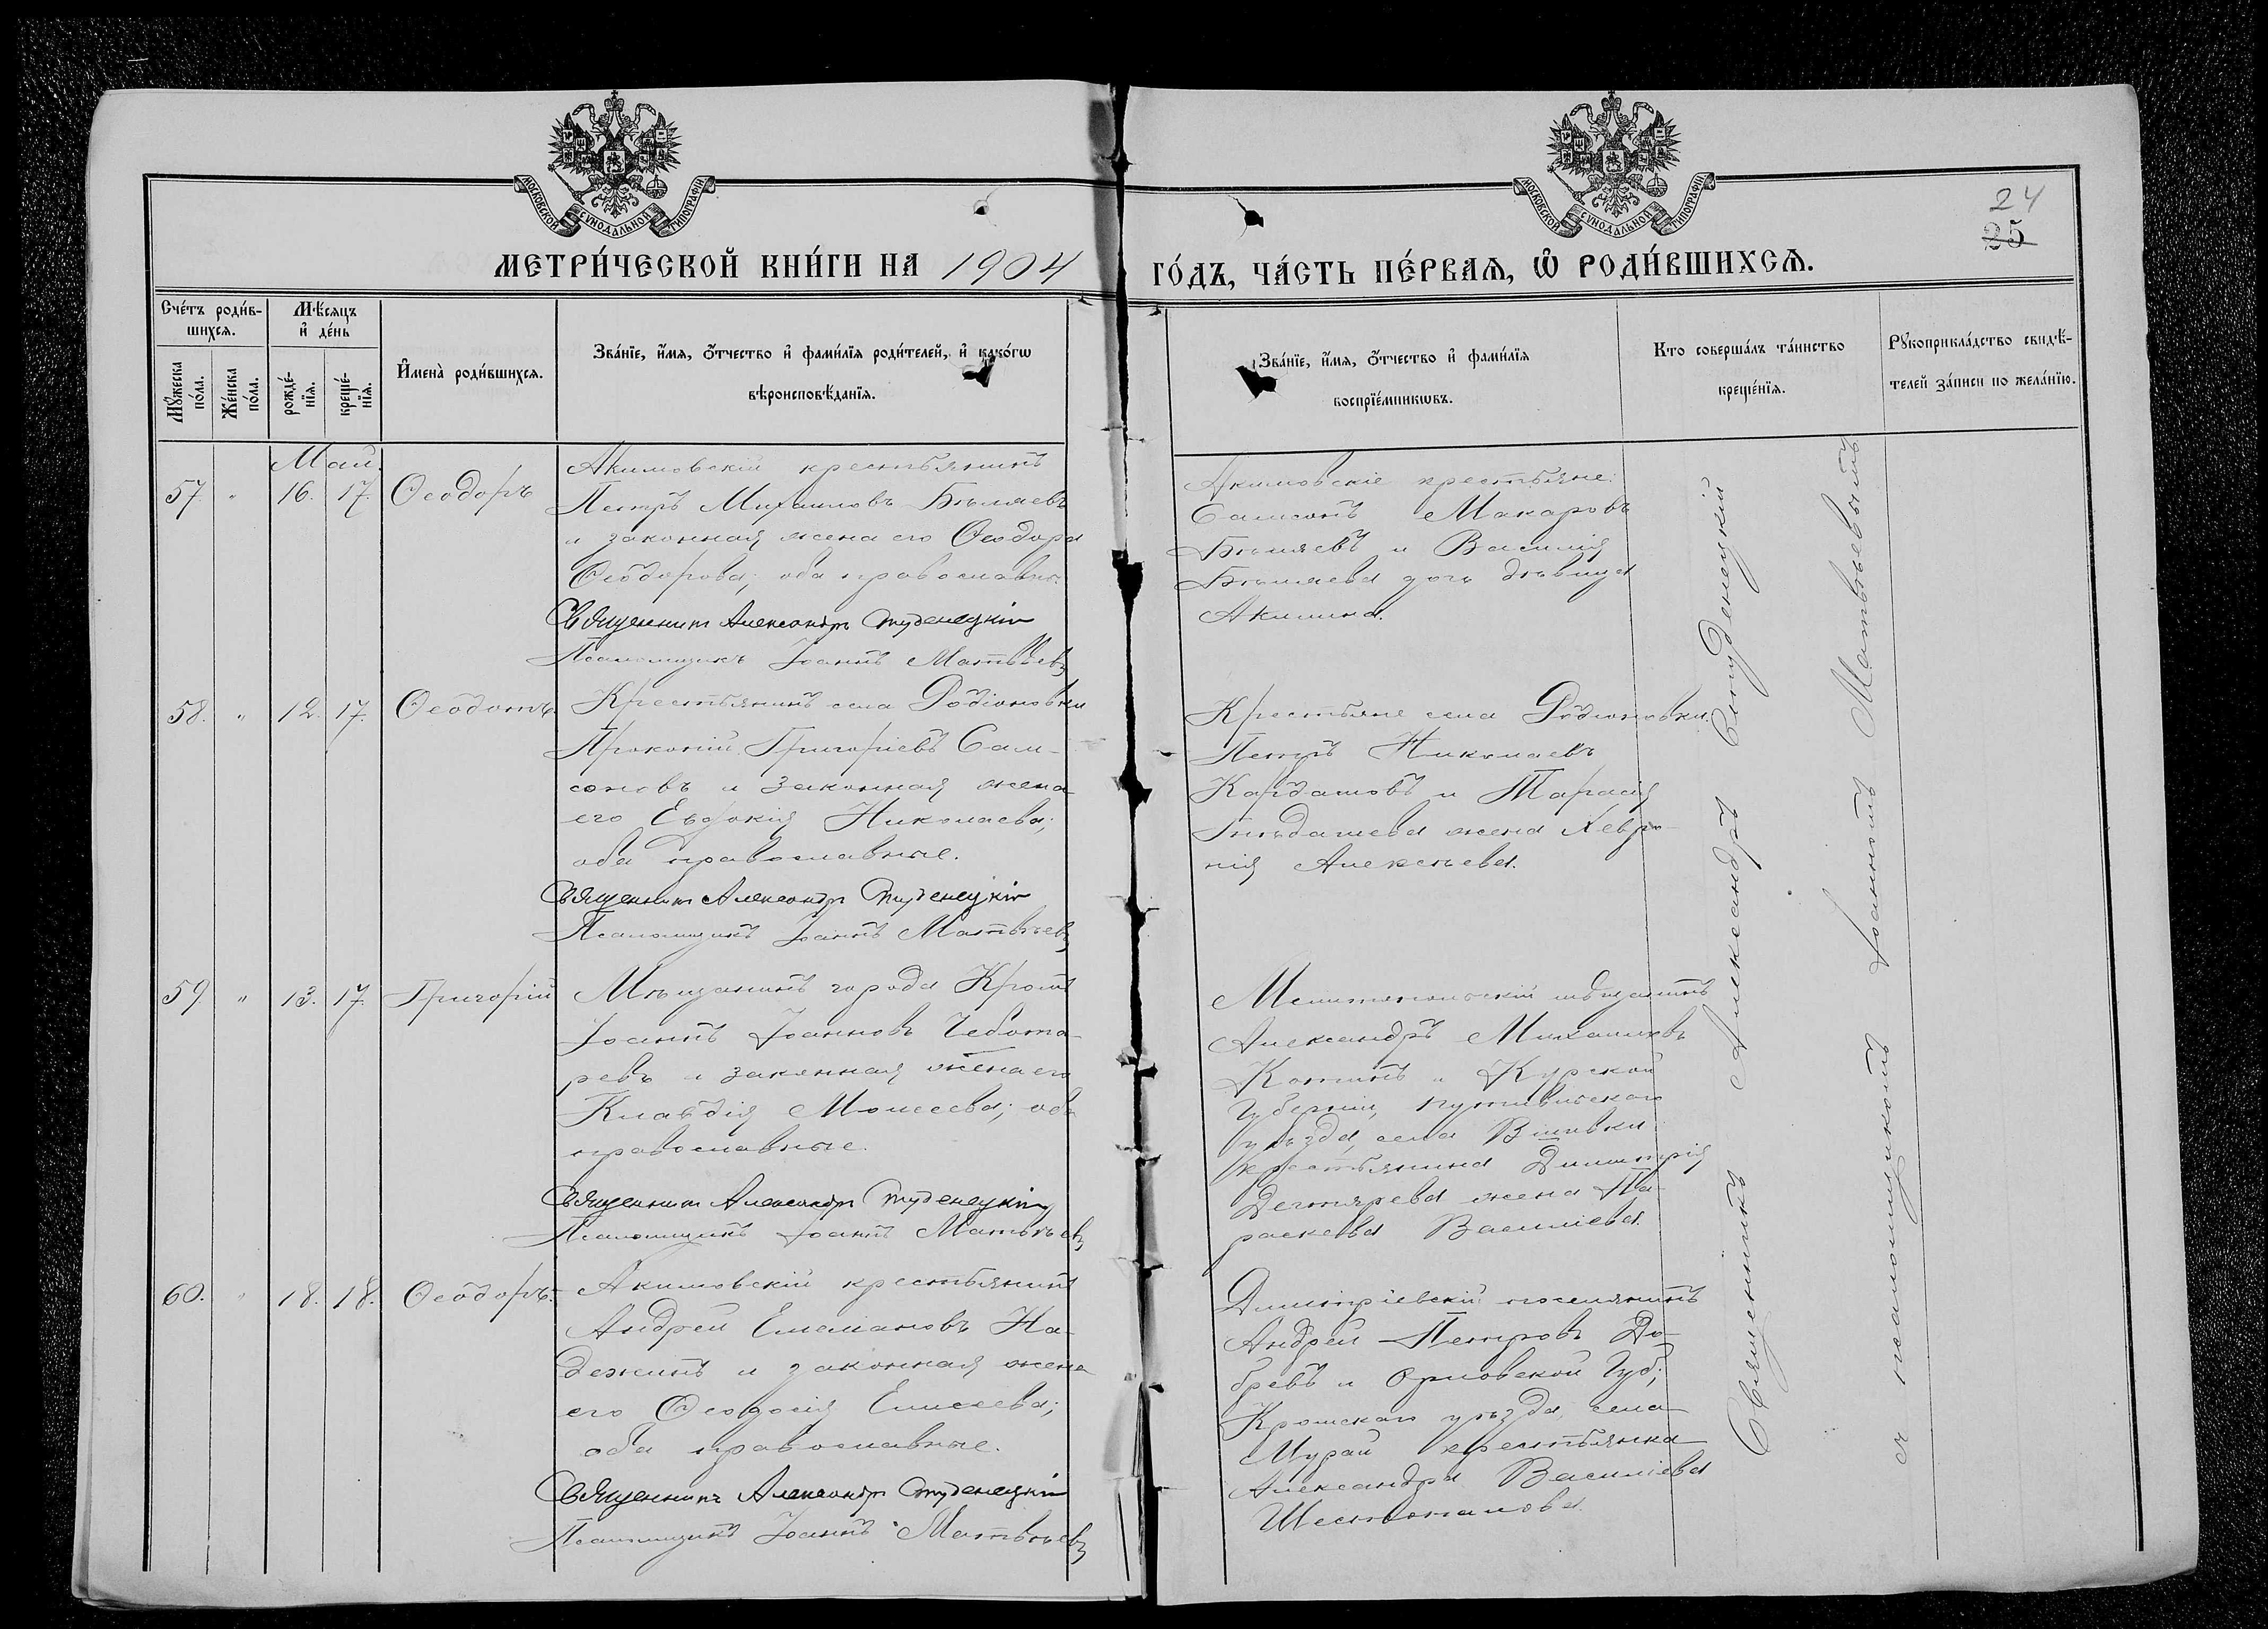 МОСКОВСКОЙ СѴНОДАЛЬНОЙ ТИПОГРАФІИ
МОСКОВСКОЙ СѴНОДАЛЬНОЙ ТИПОГРАФІИ
24
25
МЕТРИ́ЧЕСКОЙ КНИ́ГИ НА 1904 ГО́ДЪ, ЧА́СТЬ ПЕ́РВАѦ, Ѡ҆ РОДИ́ВШИХСѦ.
Сче́тъ роди́в-
шихсѧ.
Мѣ́сяцъ
и҆ де́нь
Мꙋ́жеска по́ла.
Же́нска по́ла.
рожде́-
нїѧ.
креще́-
нїѧ.
И҆мена̀ роди́вшихсѧ.
Зва́нїе, и҆́мѧ, ѻ҆́тчество и҆ фами́лїѧ роди́телей, и҆ како́гѡ
вѣроисповѣ́данїѧ.
Зва́нїе, и҆́мѧ, ѻ҆́тчество и҆ фами́лїѧ
воспрїе́мникѡвъ.
Кто соверша́лъ та́инство
креще́нїѧ.
Рꙋкоприкла́дство свидѣ́-
телей за́писи по жела́нїю.
Май.
57. " 16. 17. Ѳеодоръ
Акимовскій крестьянинъ
Петръ Михаиловъ Бѣляевъ
и законная жена его Ѳеодора
Ѳеодорова; оба православн.
Священникъ Александръ Студенецкій
Псаломщикъ Іоаннъ Матвѣевъ
Акимовскіе крестьяне:
Самсонъ Макаровъ
Бѣляевъ и Василія
Бѣляева дочь дѣвица
Акилина.
58. " 12. 17. Ѳеодотъ.
Крестьянинъ села Родіоновки
Прокопій Григоріевъ Сам-
соновъ и законная жена
его Евдокія Николаева;
оба православные.
Священникъ Александръ Студенецкій
Псаломщикъ Іоаннъ Матвѣевъ
Крестьяне села Родіоновки
Петръ Николаевъ
Кардашовъ и Тарасія
жена Хевро-
нія Алексѣева.
59 " 13. 17. Григорій
Мѣщанинъ города Кромъ
Іоаннъ Іоанновъ Чебота-
ревъ и законная жена его
Клавдія Моисеева; оба
православные.
Священникъ Александръ Студенецкій
Псаломщикъ Іоаннъ Матвѣевъ
Мелитопольскій мѣщанинъ
Александръ Михаиловъ
и Курской
Губерніи, Путивльскаго
уѣзда, села
крестьянина Димитрія
Дегтярева жена Па-
раскева Василіева.
60. " 18. 18. Ѳеодоръ.
Акимовскій крестьянинъ
Андрей Емеліановъ На-
дежинъ и законная жена
его Ѳеодосія Елисеева;
оба православные.
Священникъ Александръ Студенецкій
Псаломщикъ Іоаннъ Матвѣевъ
Димитріевскій поселянинъ
Андрей Петровъ До-
бревъ и Орловской Губ;
Кромскаго уѣзда, села
крестьянка
Александра Василіева
Шестопалова.
Священникъ Александръ Студенецкій
съ псаломщикомъ Іоанномъ Матвѣевымъ